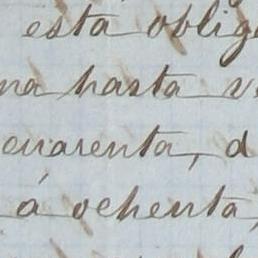 esta oblig
na hasta ve
cuarenta, d
á ochenta,